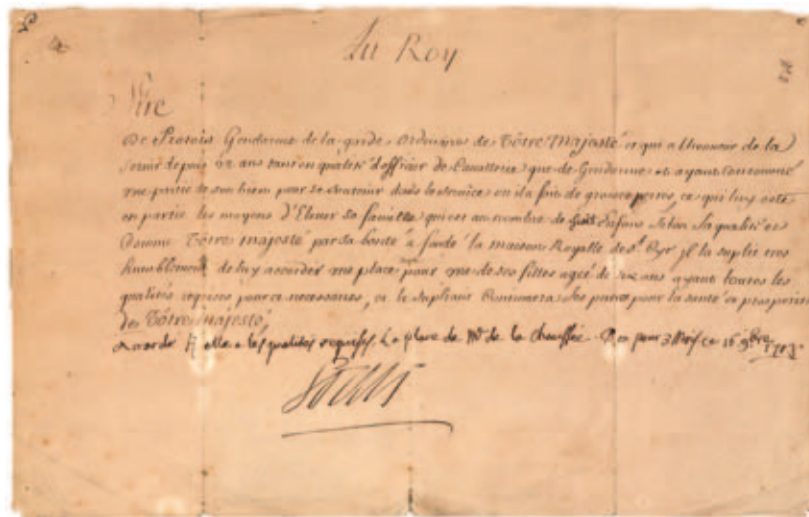 Au Roy
Sire
De Gendarme de la garde ordinaire de Vôtre Majesté et qui a l'honneur de la
Servir depuis 22 ans tant en qualité d'officier de Cavallerie que de Gendarme et ayant Consommé
une partie de son bien pour se soutenir dans le service ou il a fait de grosses pertes, ce qui luy oste
en partie les moyens d'Elever sa famille qui est au nombre de Enfans Selon sa qualité et
Comme Vôtre Majesté par sa bonté a fondé la maison Royalle de St. Cyr il la suplie tres
humblement de luy accorder une place pour une de ses filles agée de ans ayant toutes les
qualités requises pour ce necessaires, et le supliant Continuera ses prieres pour la santé et prosperité
de Vôtre Majesté,
Accordé Si elle a les qualités requises. La place de de la Chaussée. pour 3 ce 16 9bre